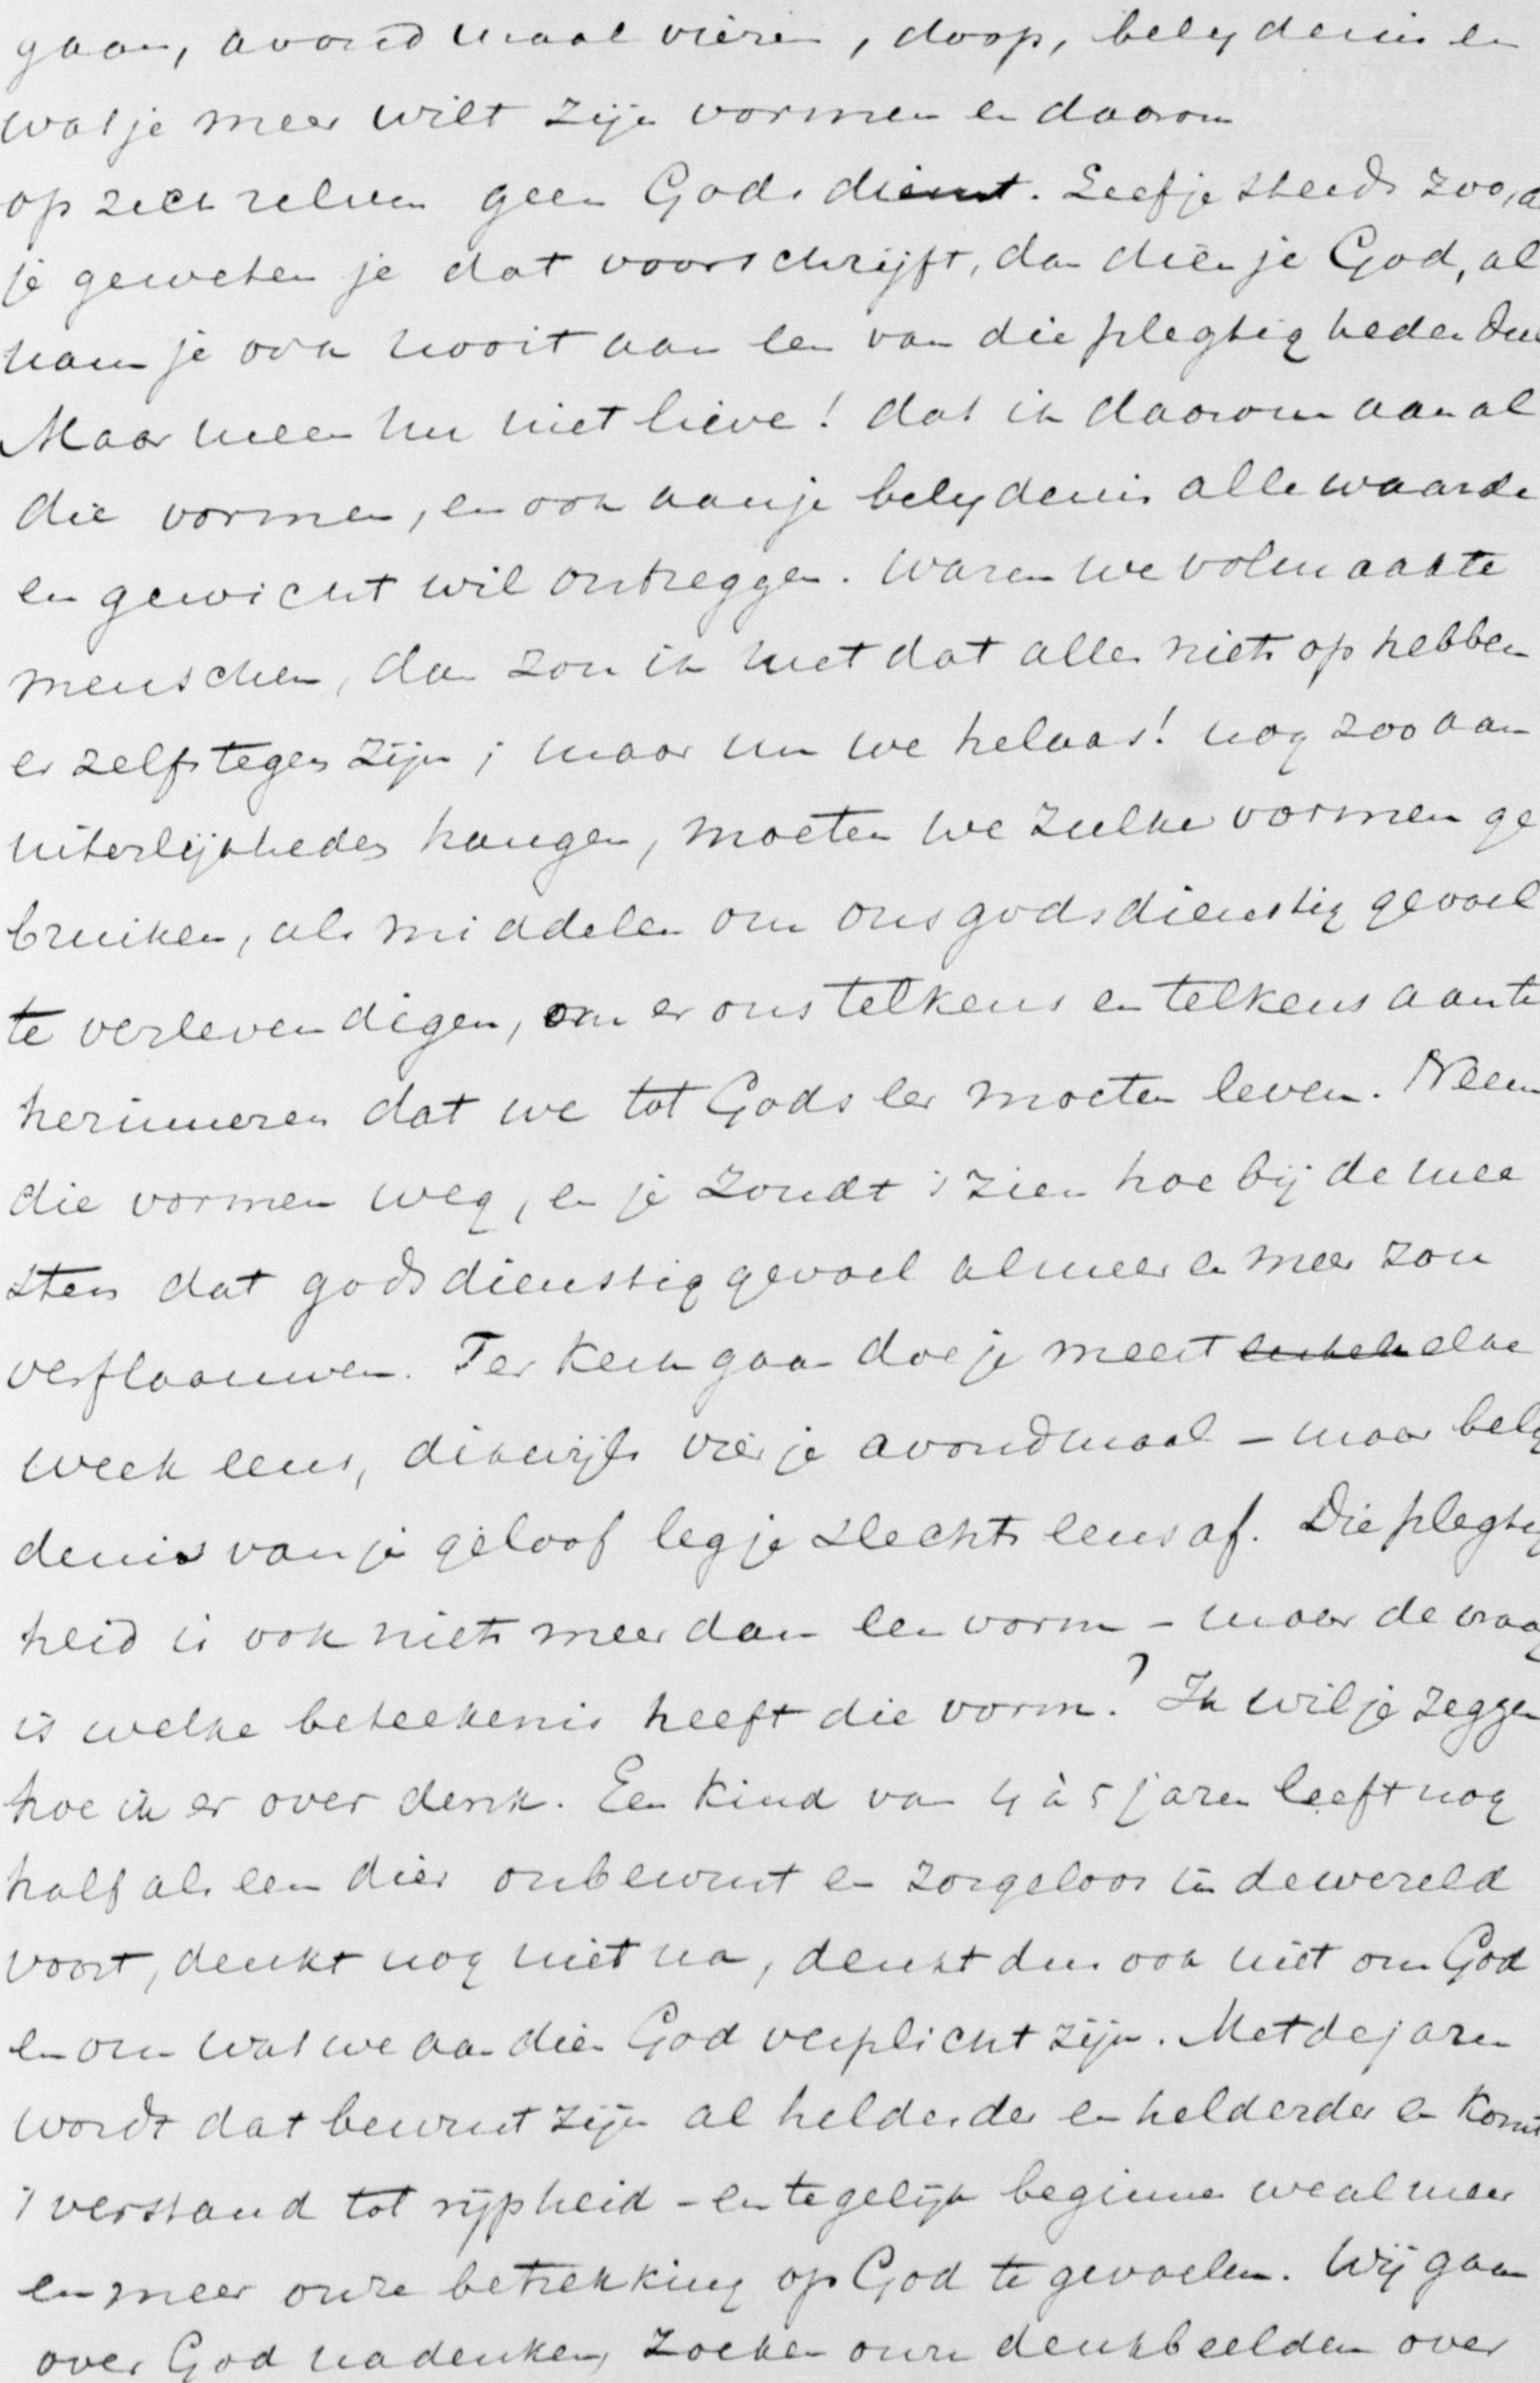 gaan, avondmaal vieren, doop, belydenis en
wat je meer wilt zijn vormen en daarom
op zich zelven geen Godsdienst. Leef je steeds zoo, a
je geweten je dat voorschrijft, dan dien je God, al
nam je ook nooit aan een van die plegtigheden deel
Maar meen nu niet lieve! dat ik daarom aan al
die vormen, en ook aan je belydenis alle waarde
en gewicht wil ontzeggen. Waren we volmaakte
menschen, dan zou ik met dat alles niets op hebben
er zelfs tegen zijn; maar nu we helaas! nog zoo aan
uiterlijkheden hangen, moeten we zulke vormen ge
bruiken, als middelen om ons godsdienstig gevoel
te verlevendigen, om er ons telkens en telkens aan te
herinneren dat we tot Gods eer moeten leven. Neem
die vormen weg, en je zoudt 's zien hoe bij de mee
sten dat godsdienstig gevoel al meer en meer zou
verflaauwen. Ter kerk gaan doe je meest elke
week eens, dikwijls vier je avondmaal – maar bely
denis van je geloof leg je slechts eens af. Die plegtig
heid is ook niets meer dan een vorm – maar de vraag
is welke beteekenis heeft die vorm? Ik wil je zeggen
hoe ik er over denk. Een kind van 4 à 5 jaren leeft nog
half als een dier onbewust en zorgeloos in de wereld
voort, denkt nog niet na, denkt dus ook niet om God
en om wat we aan dien God verplicht zijn. Met de jaren
wordt dat bewust zijn al helderder en helderder en komt
't verstand tot rijpheid – en tegelijk beginnen we al meer
en meer onze betrekking op God te gevoelen. Wij gaan
over God nadenken, zoeken onze denkbeelden over